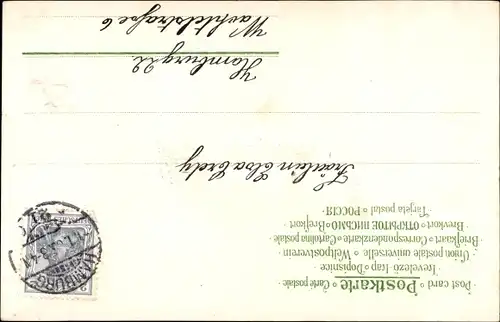 Postkarte
Post card ◦ Carte postale
Levelező-Lap ◦ Dopisnice
Union postale universelle ◦ Weltpostverein
Briefkaart ◦ Correspondenzkarte ◦ Cartolina postale
Brevkort ◦ ОТКРЫТОЕ ПИСЬМО ◦ Brefkort
Tarjeta postal ◦ РОССІЯ
Fräulein Elsa
Hamburg 22
Wachtelstraße 6
HAMBURG